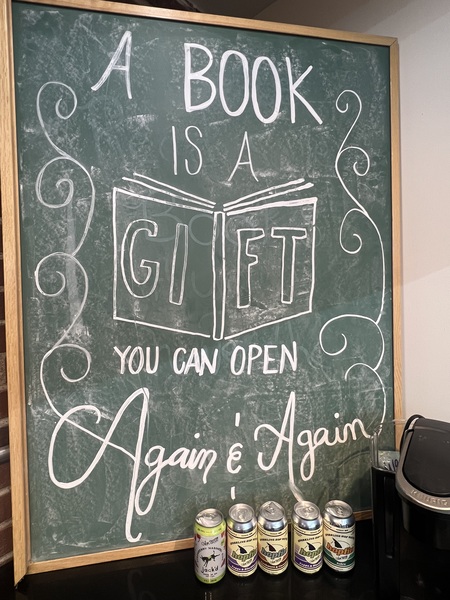 A BOOK
IS A
GIFT
YOU CAN OPEN
Again & Again